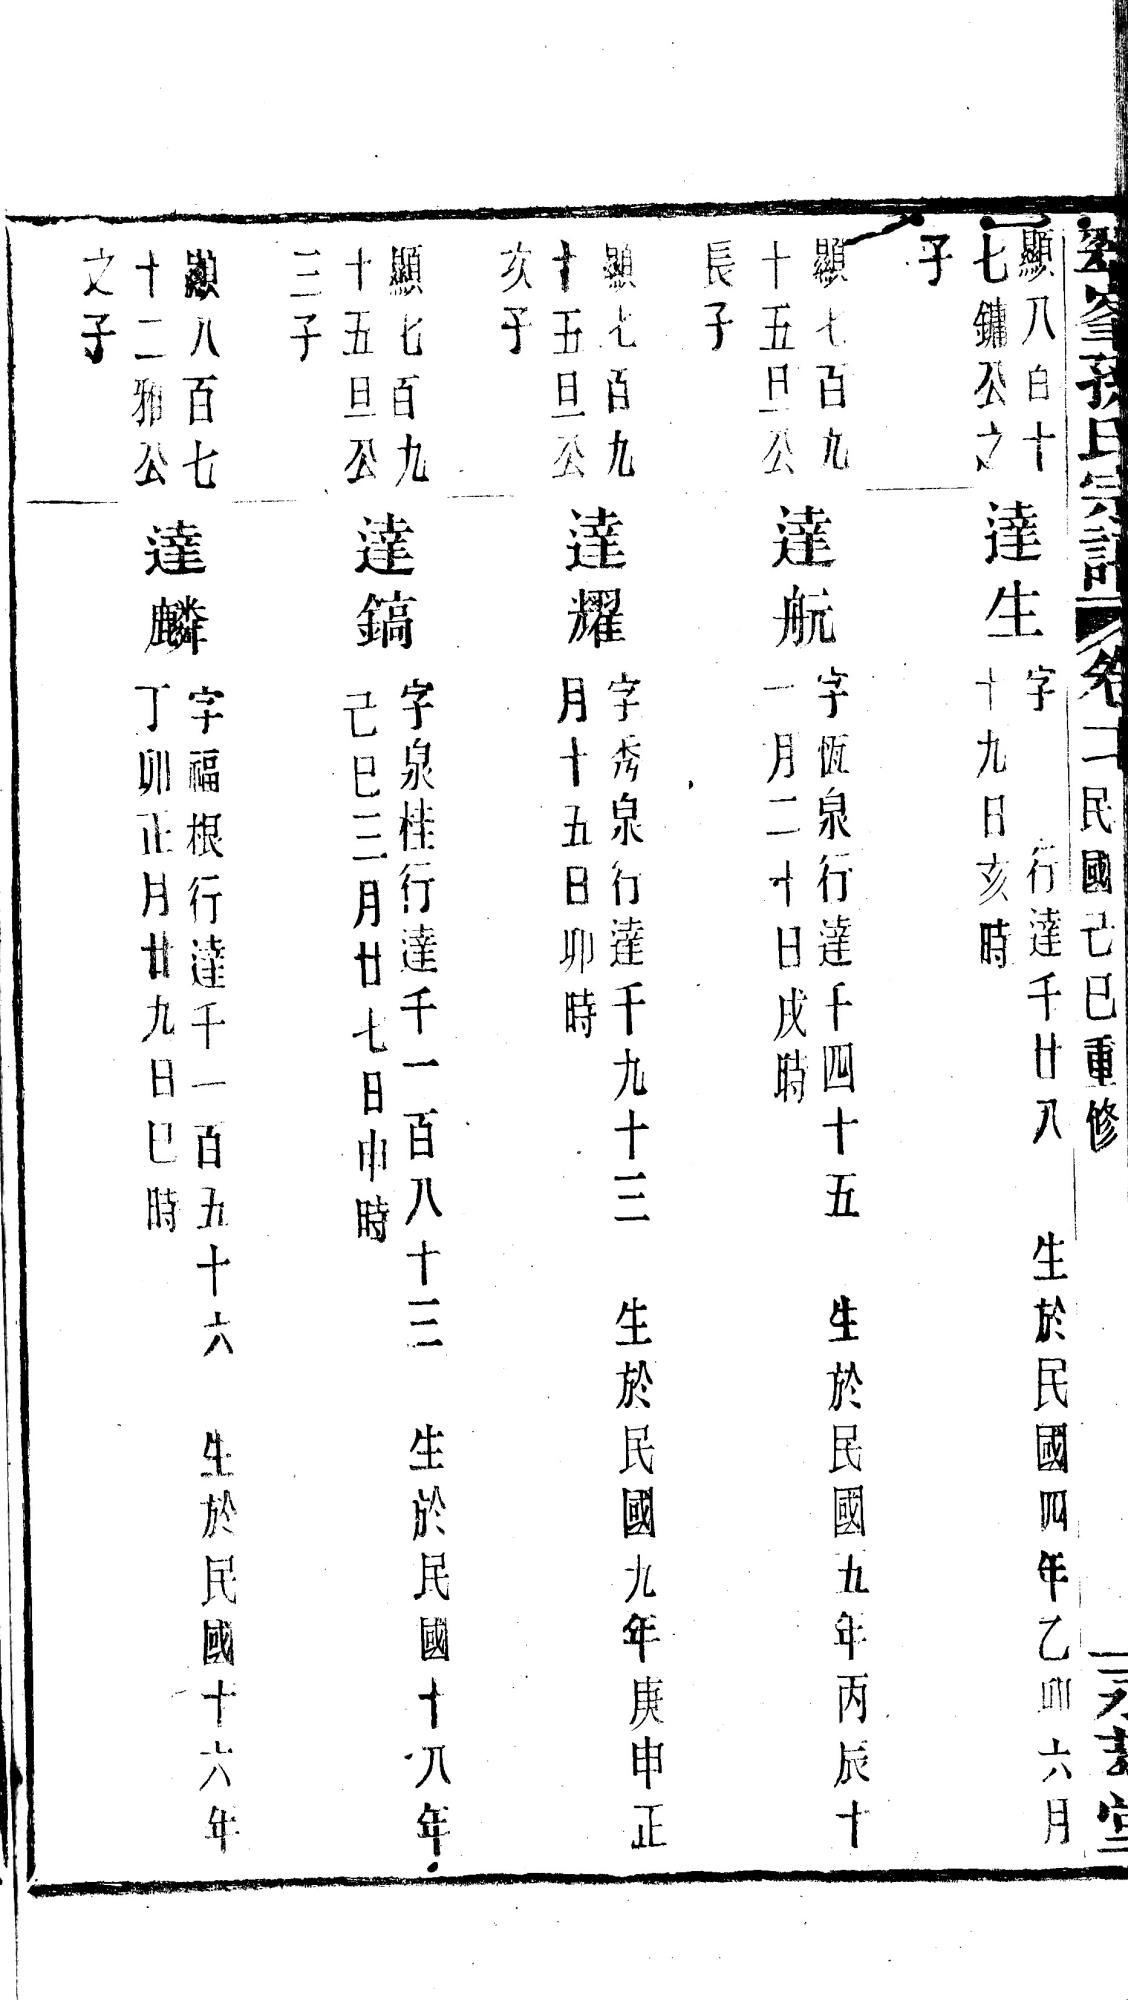 孫氏宗譜 卷二 民國己巳重修 堂
顯八百十
七鏞公之
子
達生
字 行達千廿八 生於民國四年乙卯六月
十九日亥時
顯七百九
十五旦公
長子
達航
字恆泉行達千四十五 生於民國五年丙辰十
一月二十日戌時
顯七百九
十五旦公
次子
達耀
字秀泉行達千九十三 生於民國九年庚申正
月十五日卯時
顯七百九
十五旦公
三子
達鎬
字泉桂行達千一百八十三 生於民國十八年
己巳三月廿七日申時
顯八百七
十二邪公
之子
達麟
字福根行達千一百五十六 生於民國十六年
丁卯正月廿九日巳時